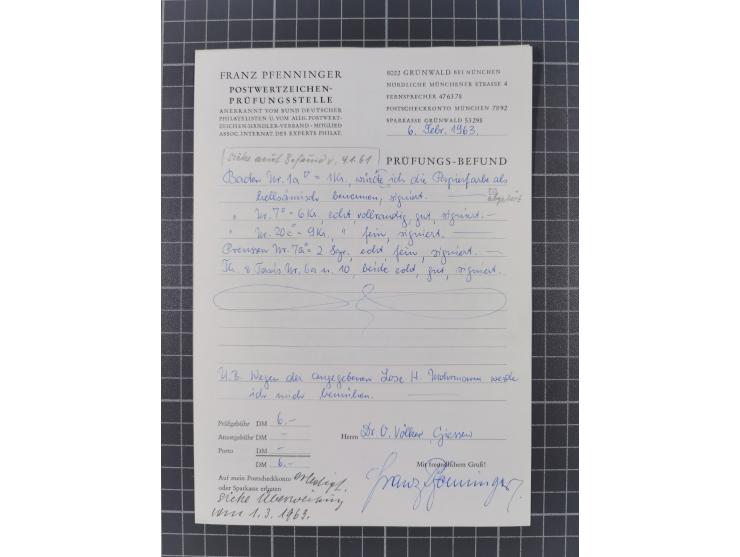 FRANZ PFENNINGER
POSTWERTZEICHEN-
PRÜFUNGSSTELLE
ANERKANNT VOM BUND DEUTSCHER
PHILATELISTEN U. VOM ALLG. POSTWERT-
ZEICHEN-HÄNDLER-VERBAND - MITGLIED
ASSOC. INTERNAT. DES EXPERTS PHILAT.
8022 GRÜNWALD BEI MÜNCHEN
NORDLICHE MÜNCHENER STRASSE 4
FERNSPRECHER 476378
POSTSCHECKKONTO MÜNCHEN 7892
SPARKASSE GRÜNWALD 53298
6. Febr. 1963.
siehe auch Befund v. 4.1.61
PRÜFUNGS-BEFUND
Baden Nr. 1a = 1 Kr., würde ich die Papierfarbe als
hellsämisch benennen, signiert. —
" Nr. 7 = 6 Kr., echt, vollrandig, gut, signiert. —
" Nr. 20c = 9 Kr., " fein, signiert. —
Preussen Nr. 7a = 2 Sgr., echt, fein, signiert. —
Th. & Taxis Nr. 6a u. 10, beide echt, gut, signiert.
N.B. Wegen der angegebenen Lose H. Mohrmann werde
ich mich bemühen. —
Prüfgebühr DM 6.-
Attestgebühr DM -
Porto -
DM 6.-
Herrn Dr. O. Völker, Giessen
Mit freundlichem Gruß!
Franz Pfenninger.
Auf mein Postscheckkonto erledigt.
oder Sparkasse erbeten
siehe Überweisung
vom 1.3.1963.